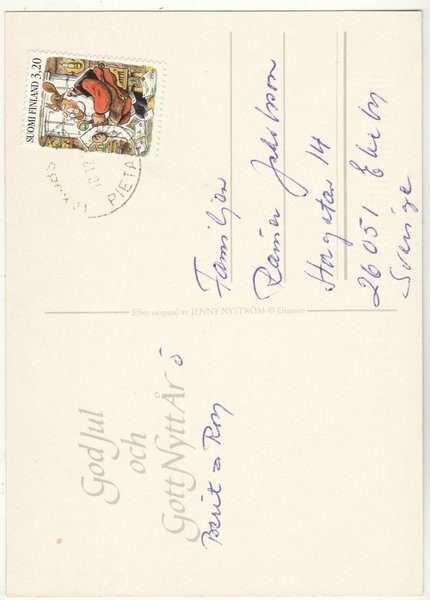 SUOMI FINLAND 3,20
PIETA
10.12
Familjen
Rainer Jakobsson
Storgatan 14
26051 Ekeby
Sverige
Efter original av JENNY NYSTRÖM © Eliasson
God Jul
och
Gott Nytt År ö
Berit o Roy